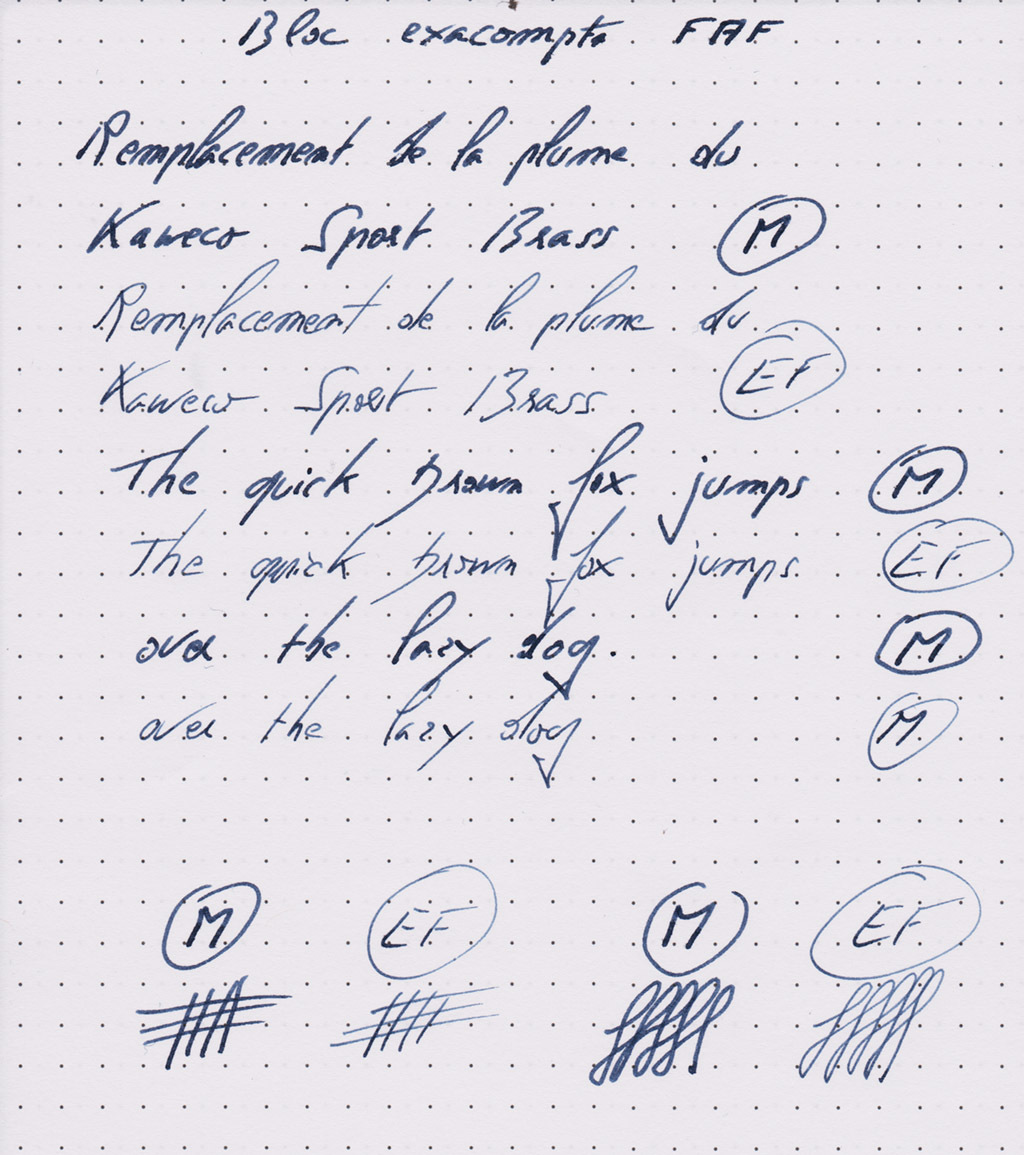 Bloc exacompta FAF
Remplacement de la plume du
Kaweco Sport Brass M
Remplacement de la plume du
Kaweco Sport Brass EF
The quick brown fox jumps M
The quick brown fox jumps EF
over the lazy dog. M
over the lazy dog M
M EF M EF